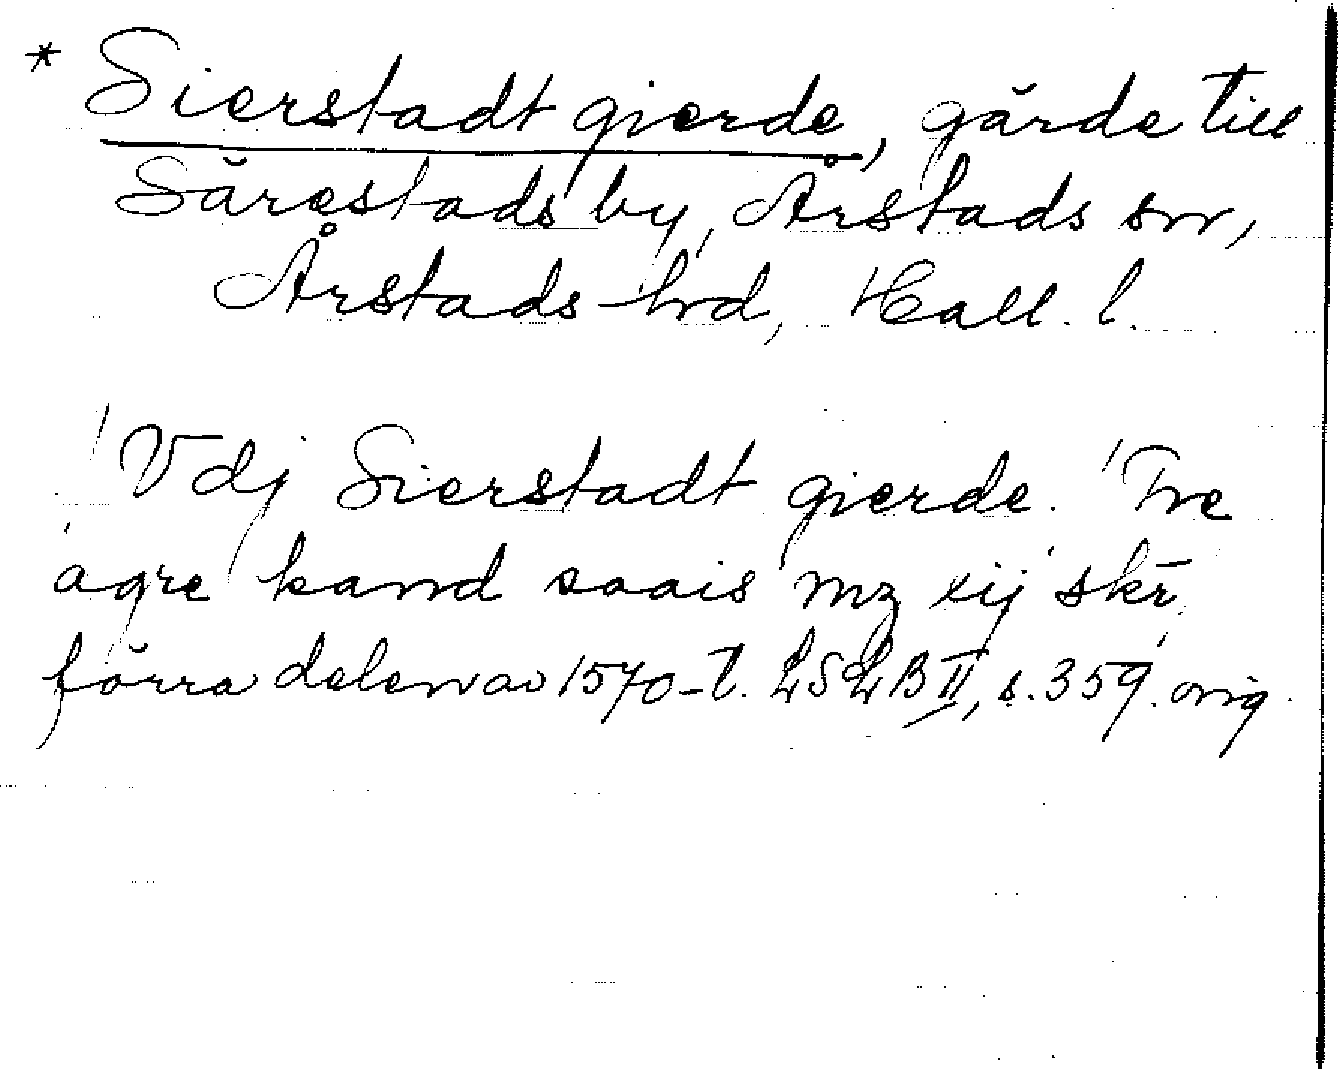 * Sierstadt gierde, gärde till
Särestads by, Årstads sn,
Årstads hd, Hall. l.
'Vdj Sierstadt gierde.' Tre
'agre kand saais mz xij skr̄'
förra delen av 1570-t. LSLB II, s. 359. orig.